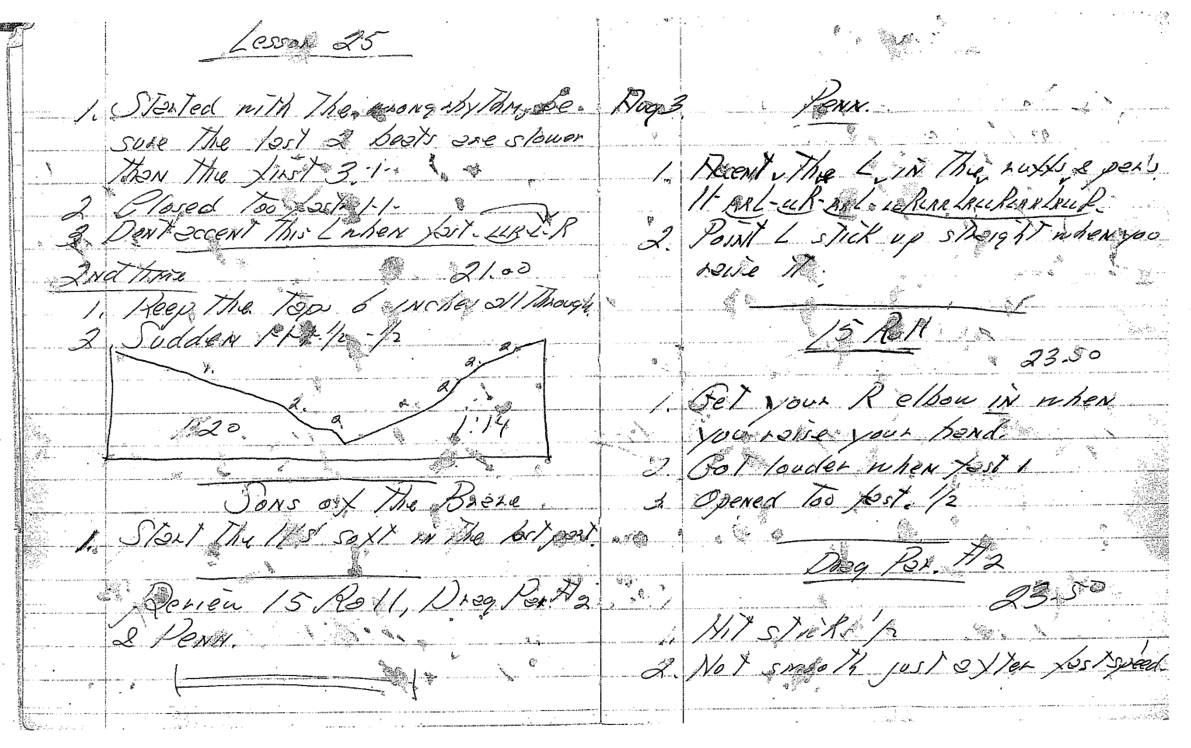 Lesson 25
1. Started with the wrong rhythm, be
sure the last 2 beats are slower
than the first 3. -1-
2. Closed too fast. -1-1-
3. Dont accent this L when fast. LLRL-R
2nd time 21.00
1. Keep the taps 6 inches all through
2. Sudden 1/2 - 1/2
1. 2. 2 2 2. 2.
1:20. 1:14
Sons of the Brave.
1. Start the 11's soft in the last part.
Review 15 Roll, Drag Par. #2
& Penn.
Aug 3. Penn.
1. Accent the L in the ruffs & par's.
11- RRL-LLR-RRL-
2. Point L stick up straight when you
raise it.
15 Roll
23.50
1. Get your R elbow in when
you raise your hand.
2. Got louder when fast 1
3. Opened too fast. 1/2
Drag Par. #2
23.50
1. Hit sticks 1/2
2. Not smooth just after fast speed.